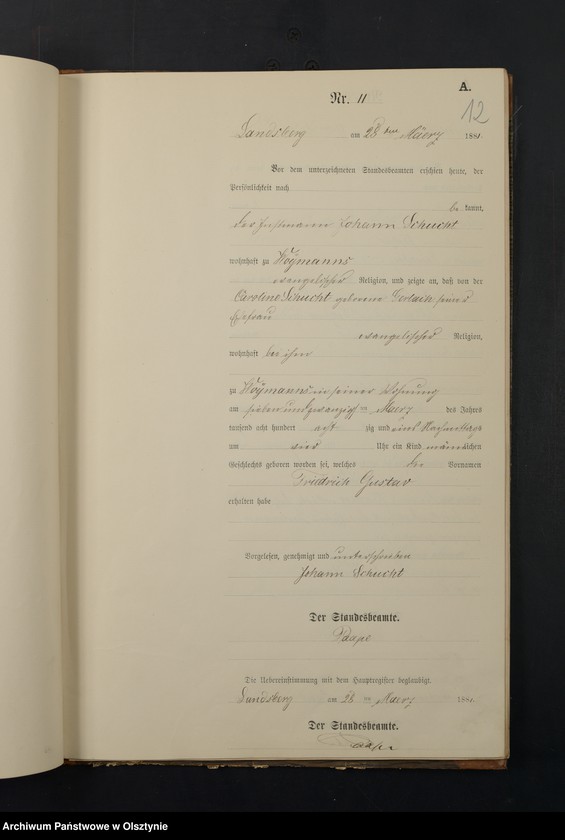 A.
Nr. 11
12
Landsberg am 28 ten Maerz 1881.
Vor dem unterzeichneten Standesbeamten erschien heute, der
Persönlichkeit nach
be kannt,
der Johann Schucht
wohnhaft zu Woymanns
evangelischer Religion, und zeigte an, daß von der
Caroline Schucht geborene Gerlach seiner
Ehefrau
evangelischer Religion,
wohnhaft bei ihm
zu Woymanns in seiner Wohnung
am sieben und zwanzigsten Maerz des Jahres
tausend acht hundert acht zig und eins Nachmittags
um vier Uhr ein Kind männlichen
Geschlechts geboren worden sei, welches die Vornamen
Friedrich Gustav
erhalten habe
Vorgelesen, genehmigt und unterschrieben
Johann Schucht
Der Standesbeamte.
Paape
Die Uebereinstimmung mit dem Hauptregister beglaubigt.
Landsberg am 28 ten Maerz 1881.
Der Standesbeamte.
Paape
Archiwum Państwowe w Olsztynie